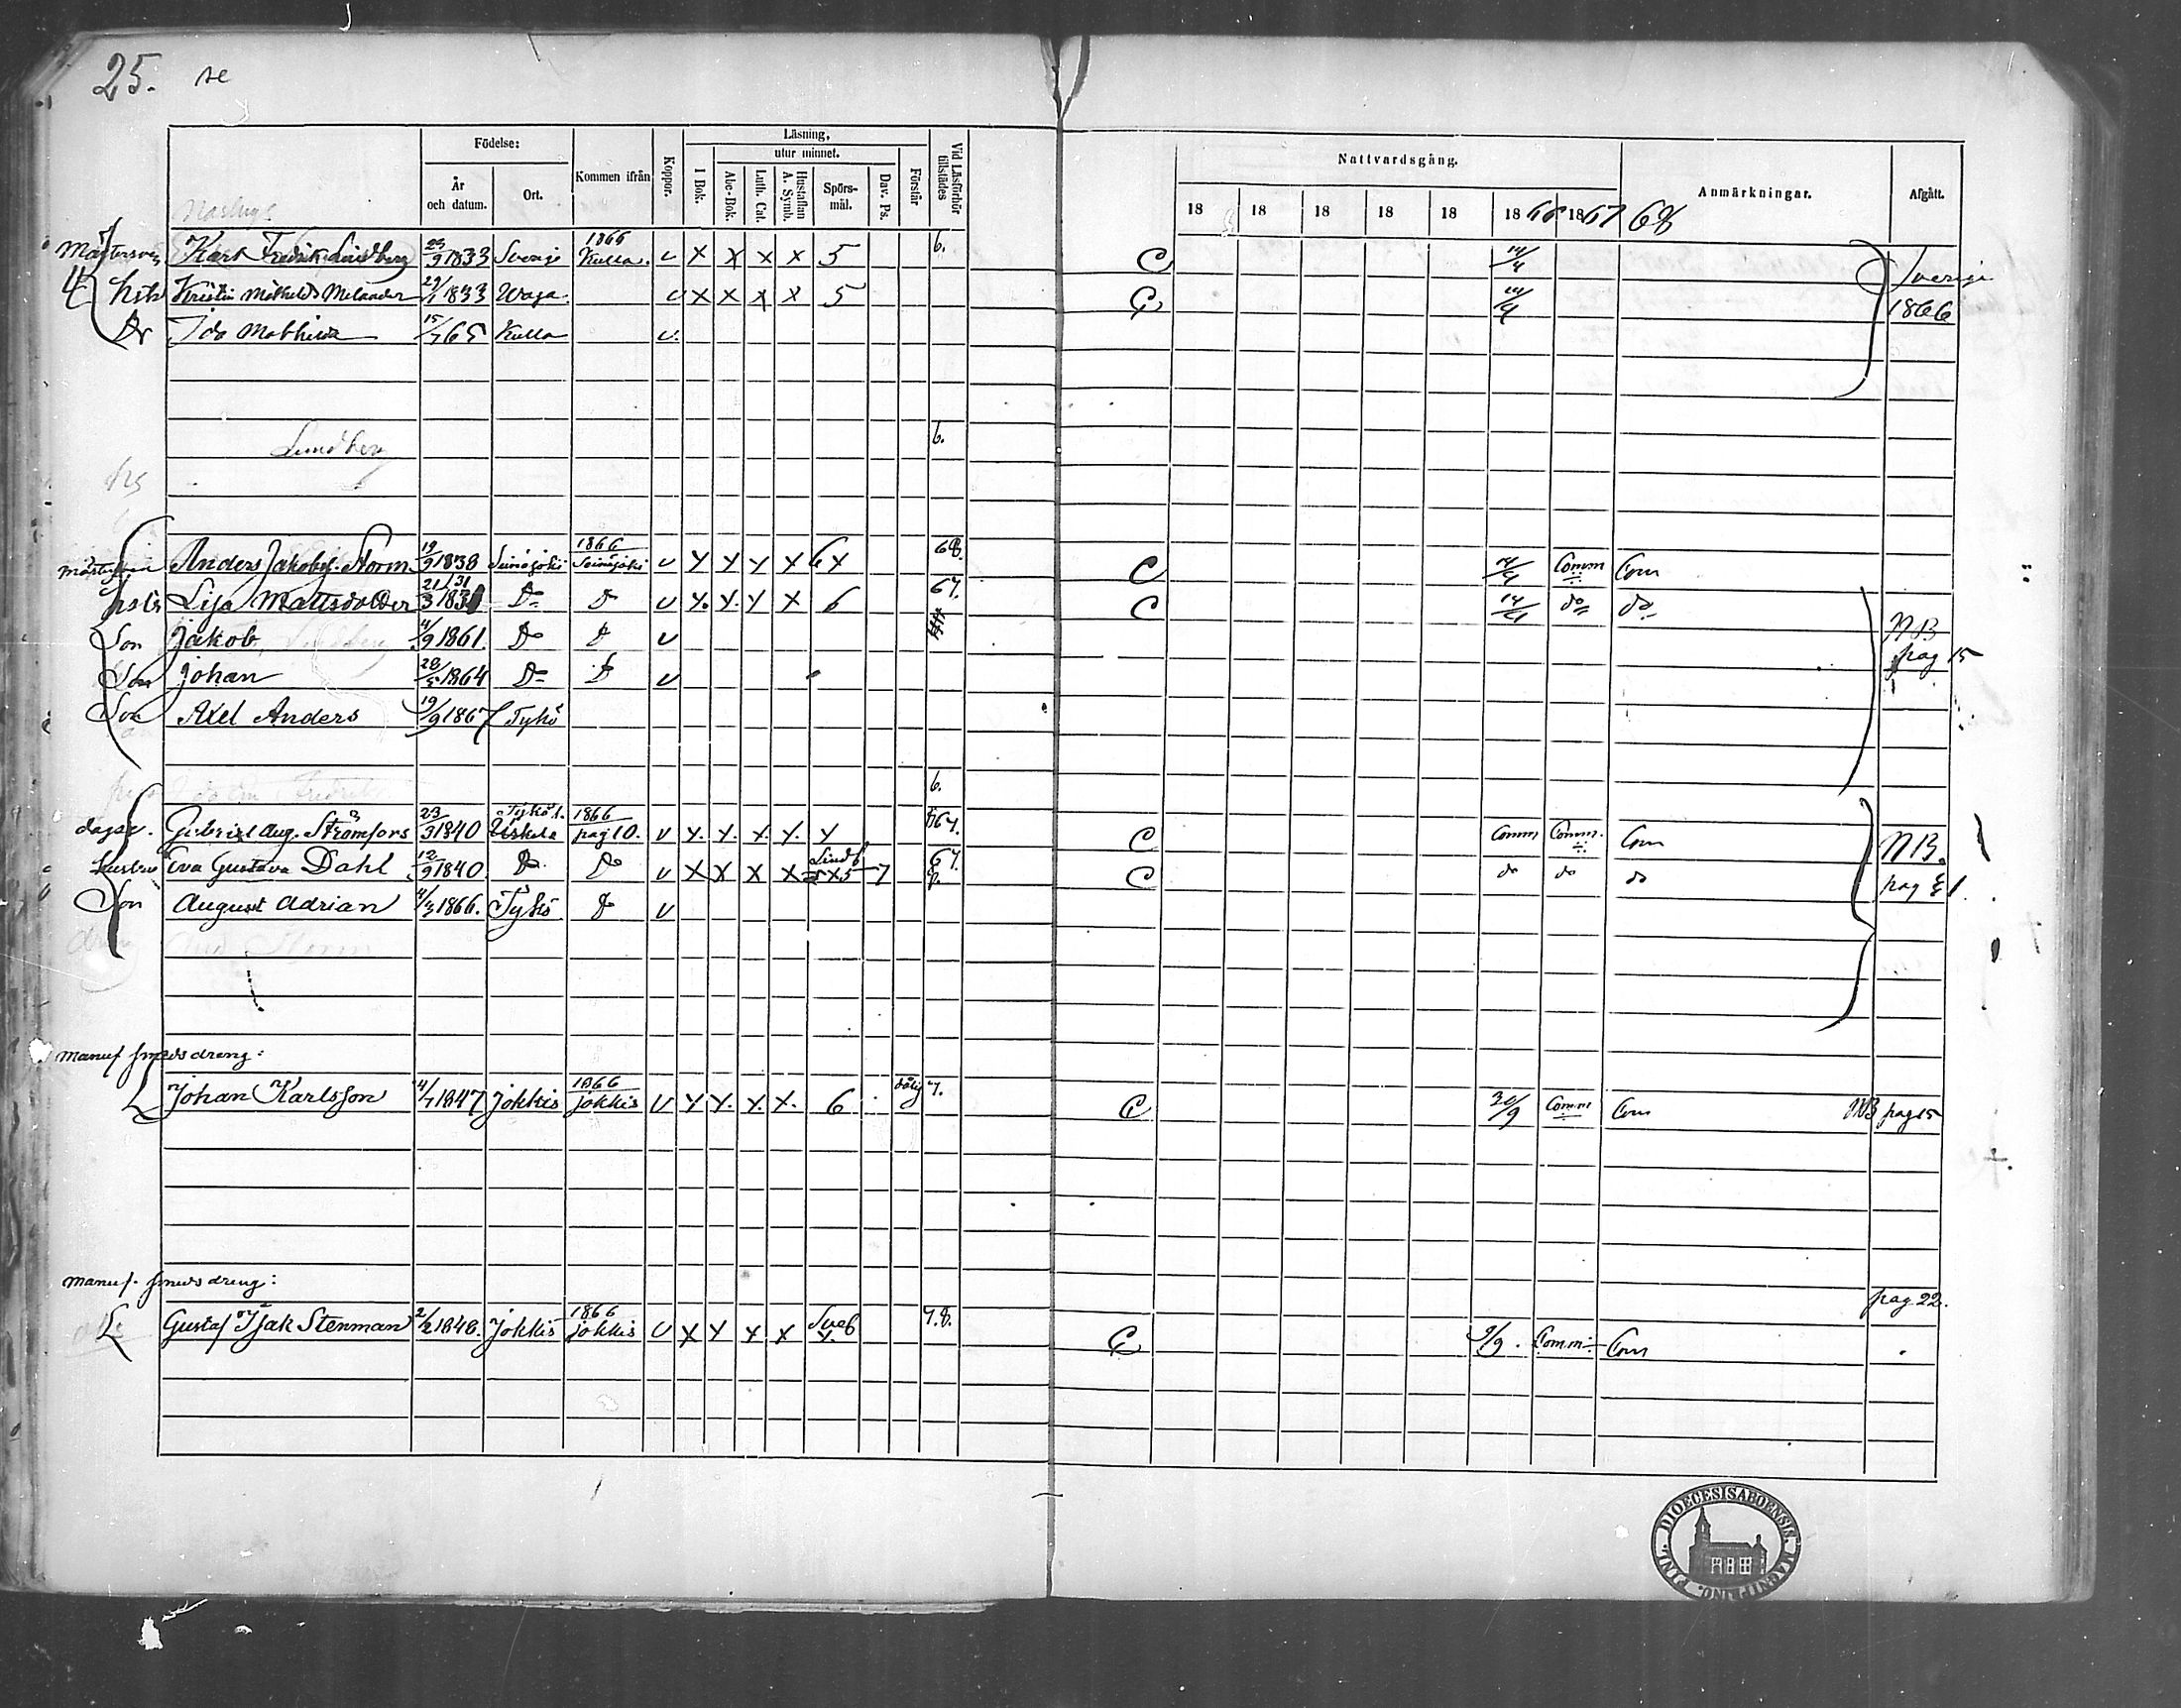 25. se
Födelse: Läsning, utur minnet. Nattvardsgång.
År och datum. Ort. Kommen ifrån Koppor. I Bok. Abc-Bok. Luth. Cat. Hustaflan A. Symb. Spörs-mål. Dav. Ps. Förstår Vid Läsförhör tillstädes 18 18 18 18 18 1866 1867 68 Anmärkningar. Afgått.
1866
Karl Fredrik Lindberg 9 1833 Sverige Kulla. v x x x x 5 6. C 14/4 Sverige
hstr Kristin Mathilda Melander 29/1 1833 v x x x x 5 C 14/4 1866
Dr Ida Mathilda 15/7 65 Kulla v.
6.
Lundberg
1866 68.
Anders Jakobss. Storm 19/9 1838 Seinäjoki Seinäjoki v x x x x 6x C 14/4 Comm Com
hstr Lisa Mattsdotter 21/3 1831 31 Do Do v x. x. x x 6 67. C 14/4 do do
Son Jakob 4/9 1861. Do Do v NB
Son Johan 28/5 1864 Do Do v pag 15
Son Axel Anders 19/9 1867 Tykö
6.
Tykö 1866
Gabriel Aug. Strömfors 23/3 1840 Uskela pag 10. v x. x. x. x. x 67. C Comm Comm. Com NB.
Hustru Eva Gustava Dahl 12/9 1840. Do Do v x x x x 5 x 5 7 67. C do do do pag
Son August Adrian 4/3 1866. Tykö Do v
manuf smedsdreng:
1866
Johan Karlsson 4/7 1847 Jokkis Jokkis v x x. x. x. 6 dålig 7. C 30/9 Comm Com NB pag 15
manuf. smedsdreng:
pag 22.
1866
Gustaf Isak Stenman 2/2 1848. Jokkis Jokkis v x x x x x. 7.8. C 9/9. Comm: Com
DIOECESIS ABOENSIS. MAGNI PRINC. FINL.